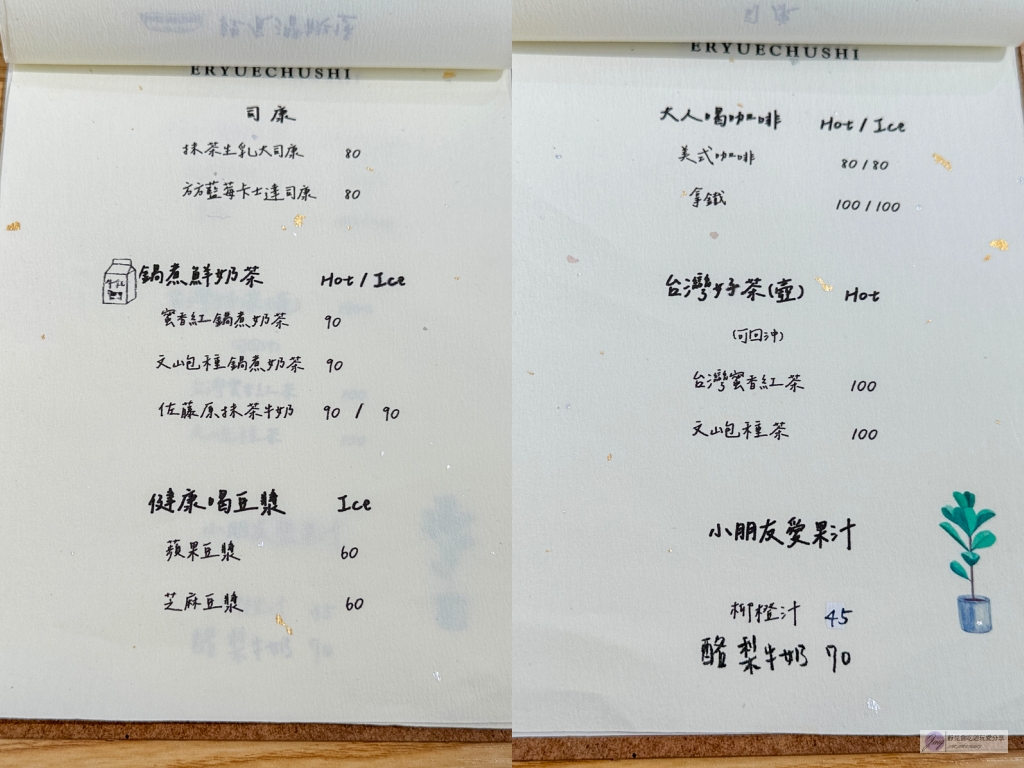 ERYUECHUSHI
司康
抹茶生乳大司康 80
方方藍莓卡士達司康 80
鍋煮鮮奶茶 Hot / Ice
蜜香紅鍋煮奶茶 90
文山包種鍋煮奶茶 90
佐藤原抹茶牛奶 90 / 90
健康喝豆漿 Ice
蘋果豆漿 60
芝麻豆漿 60
ERYUECHUSHI
大人喝咖啡 Hot / Ice
美式咖啡 80 / 80
拿鐵 100 / 100
台灣好茶(壺) Hot
(可回沖)
台灣蜜香紅茶 100
文山包種茶 100
小朋友愛果汁
柳橙汁 45
酪梨牛奶 70